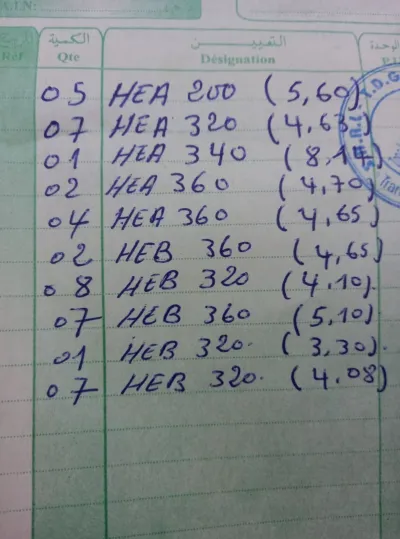 الكمية التعييـــــن الوحدة
Réf Qte Désignation
05 HEA 200 (5,60)
07 HEA 320 (4,63)
01 HEA 340 (8,14)
02 HEA 360 (4,70)
04 HEA 360 (4,65)
02 HEB 360 (4,65)
08 HEB 320 (4.10).
07 HEB 360 (5,10)
01 HEB 320. (3,30).
07 HEB 320. (4.08)